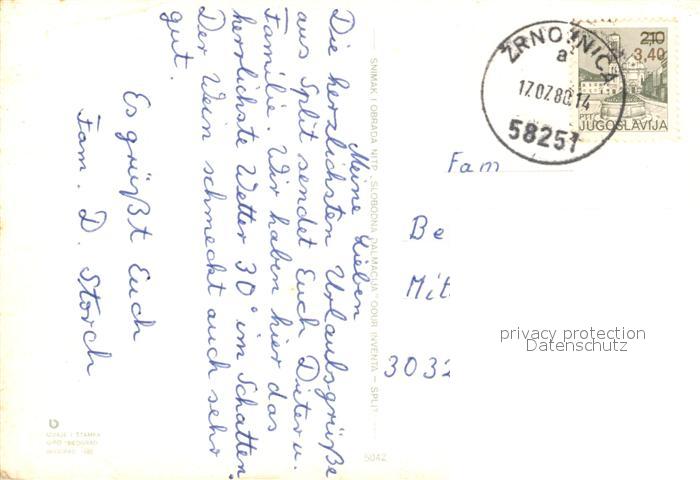 Meine Lieben
Die herzlichsten Urlaubsgrüße
aus Split sendet Euch Dieter u.
Familie. Wir haben hier das
herrlichste Wetter 30° im Schatten.
Der Wein schmeckt auch sehr
gut.
Es grüßt Euch
Fam. D. Storch
SNIMAK I OBRADA NITP „SLOBODNA DALMACIJA" OOUR INVENTA – SPLIT
5042
ŽRNOVNICA
a
17.07.80.14
58251
2,10
3,40
PTT
JUGOSLAVIJA
Fam
Be
Mit
3032
privacy protection
Datenschutz
IZDAJE I ŠTAMPA